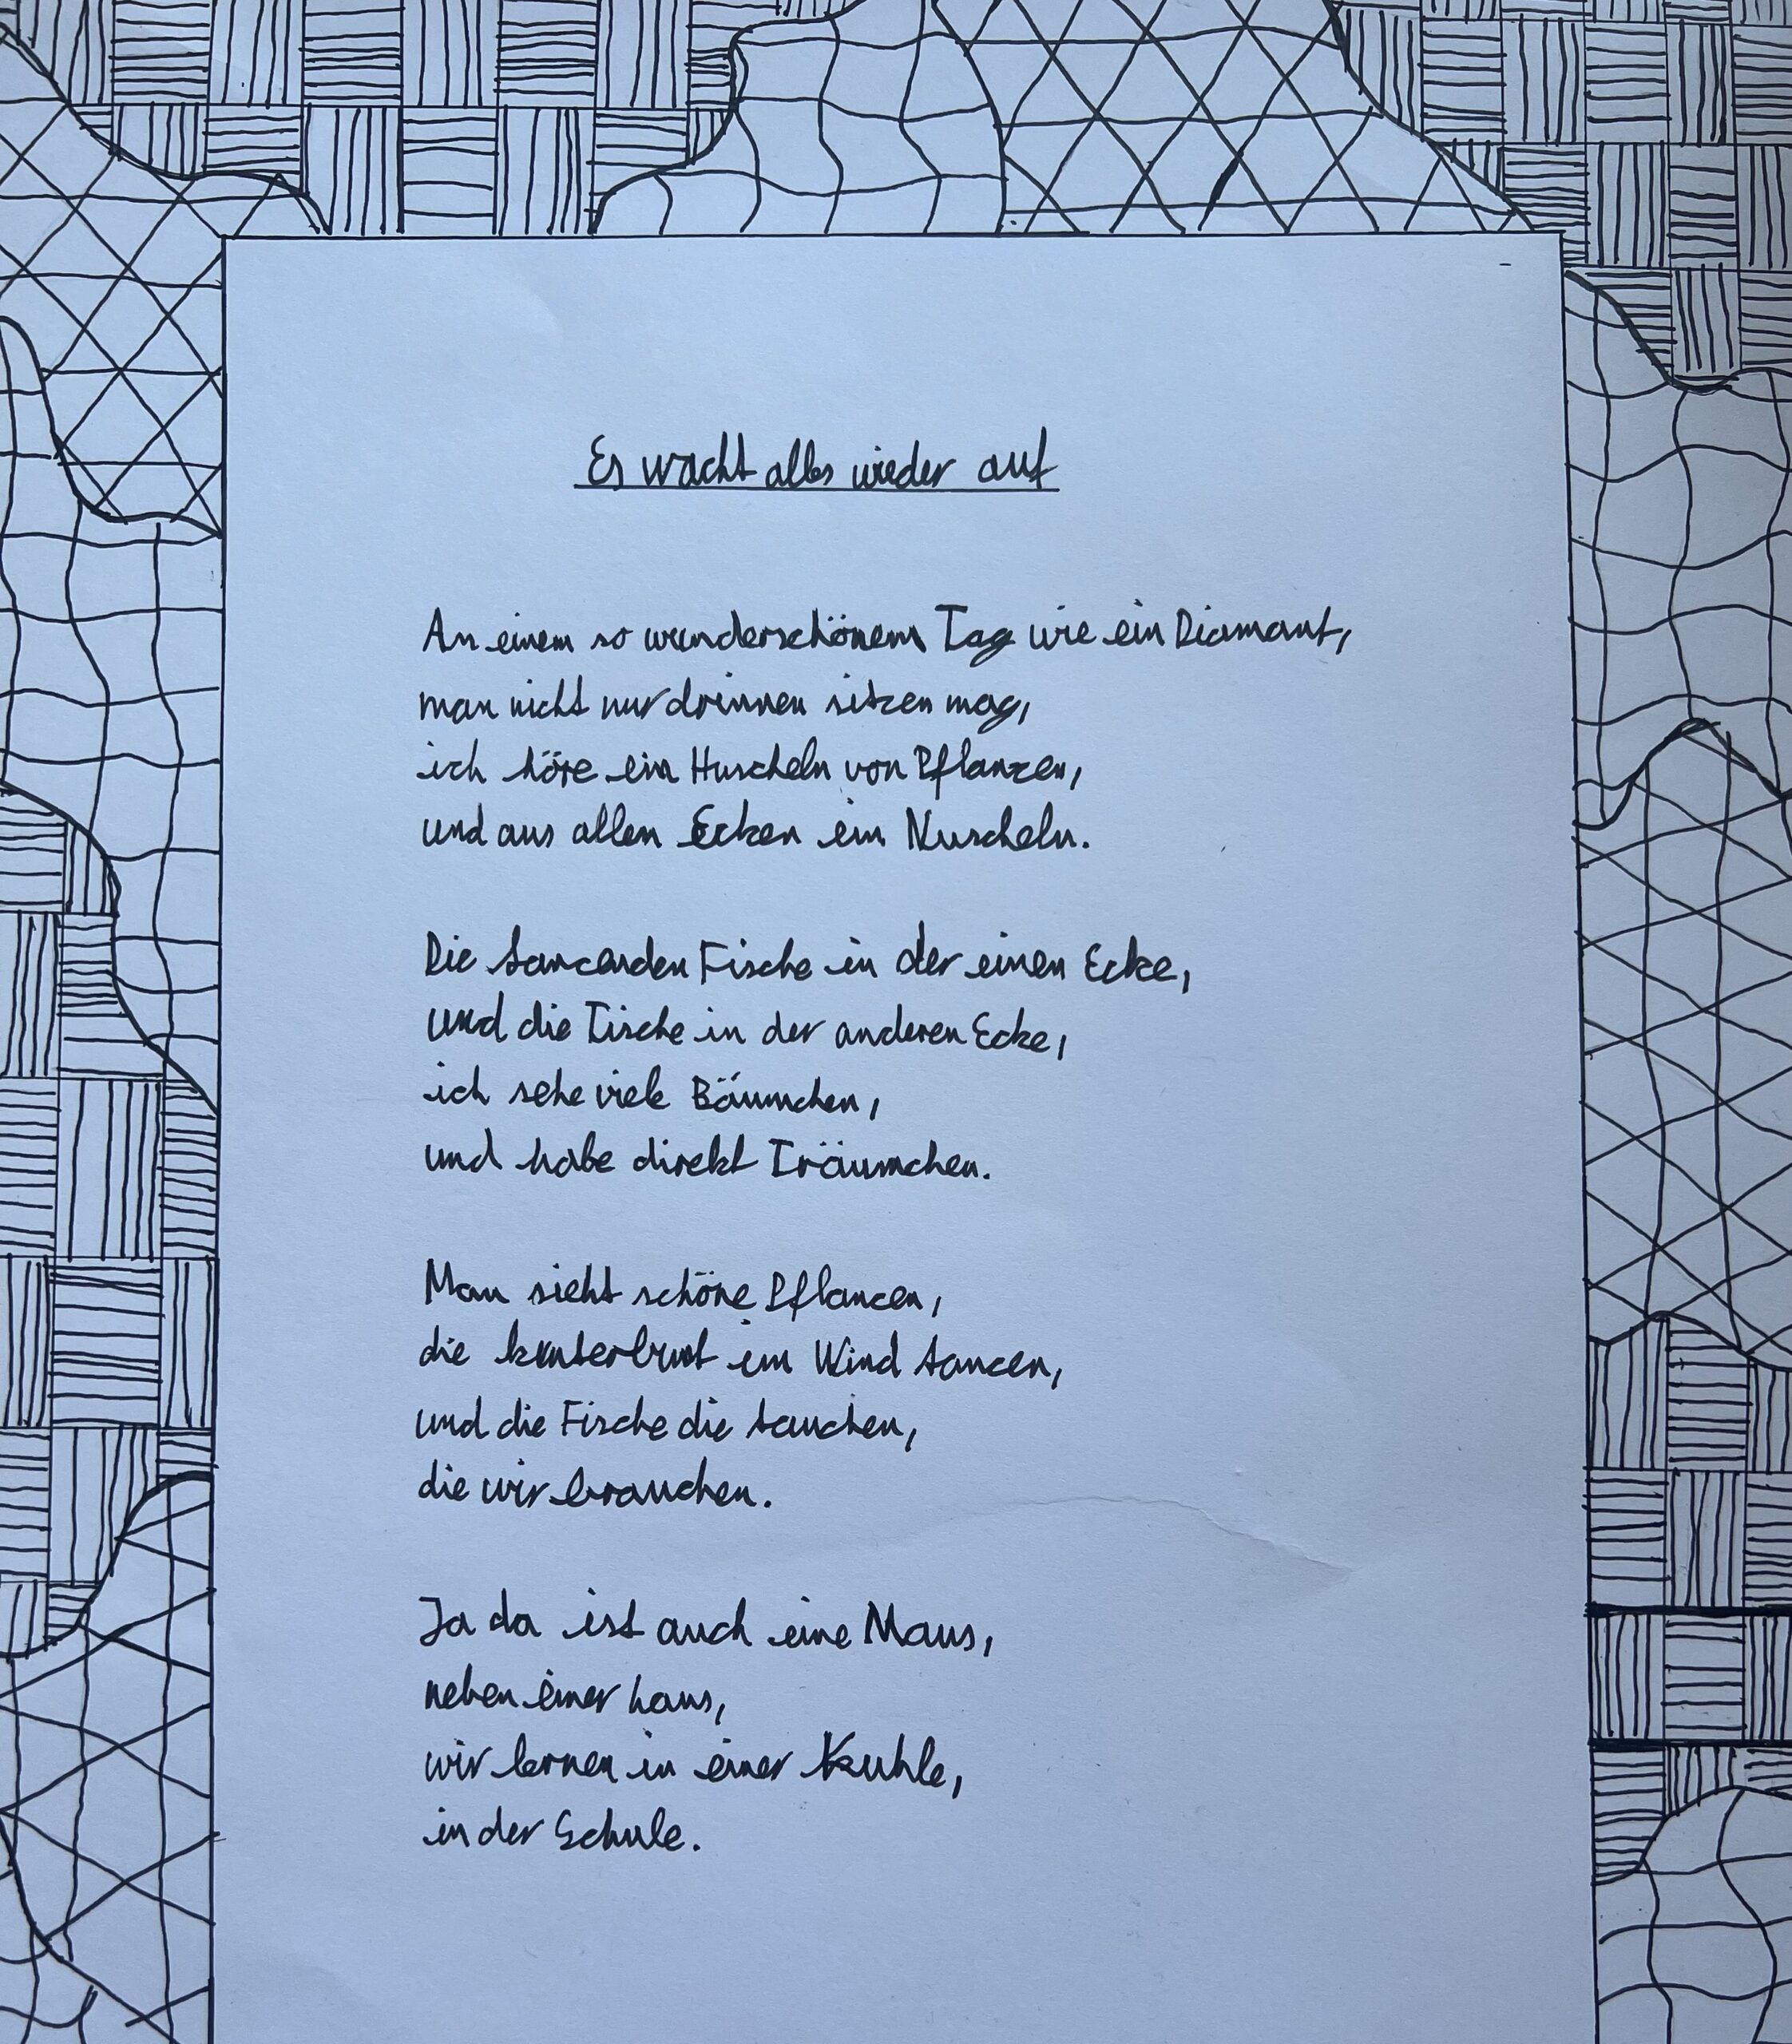 Es wacht alles wieder auf
An einem so wunderschönem Tag wie ein Diamant,
man nicht nur drinnen sitzen mag,
ich höre ein Huscheln von Pflanzen,
und aus allen Ecken ein Nuscheln.
Die tanzenden Fische in der einen Ecke,
und die Tische in der anderen Ecke,
ich sehe viele Bäumchen,
und habe direkt Träumchen.
Man sieht schöne Pflanzen,
die kunterbunt im Wind tanzen,
und die Fische die tauchen,
die wir brauchen.
Ja da ist auch eine Maus,
neben einer Laus,
wir lernen in einer Kuhle,
in der Schule.